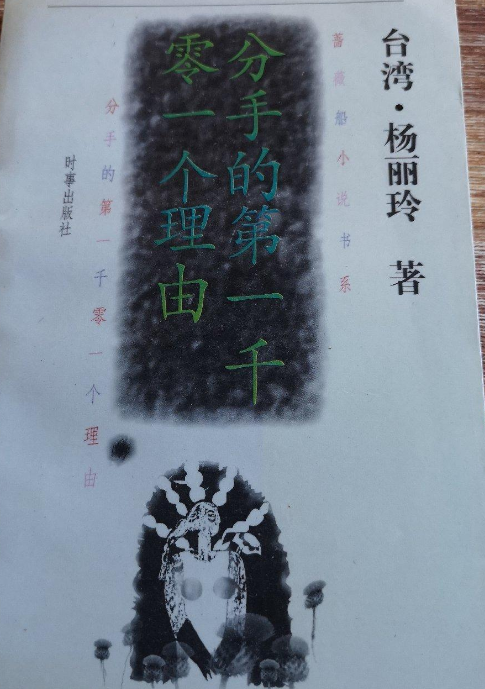 台湾·杨丽玲 著
蔷薇船小说书系
分手的第一千
零一个理由
分手的第一千零一个理由
时事出版社